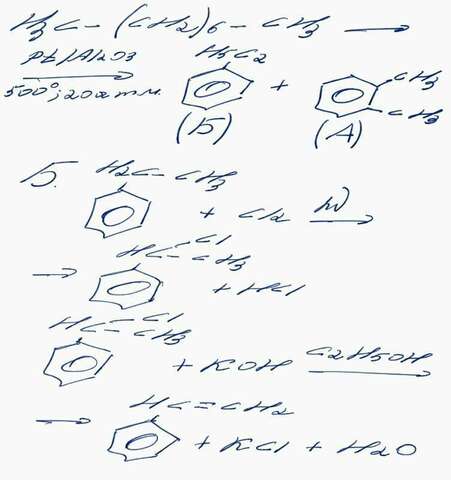 H3C - (CH2)6 - CH3 →
Pt/Al2O3
500°; 20 атм.
H5C2
+
CH3
CH3
(Б)
(А)
Б. H2C - CH3
+ Cl2 hν
Cl
HC - CH3
→ + HCl
Cl
HC - CH3
+ KOH C2H5OH
HC = CH2
→ + KCl + H2O